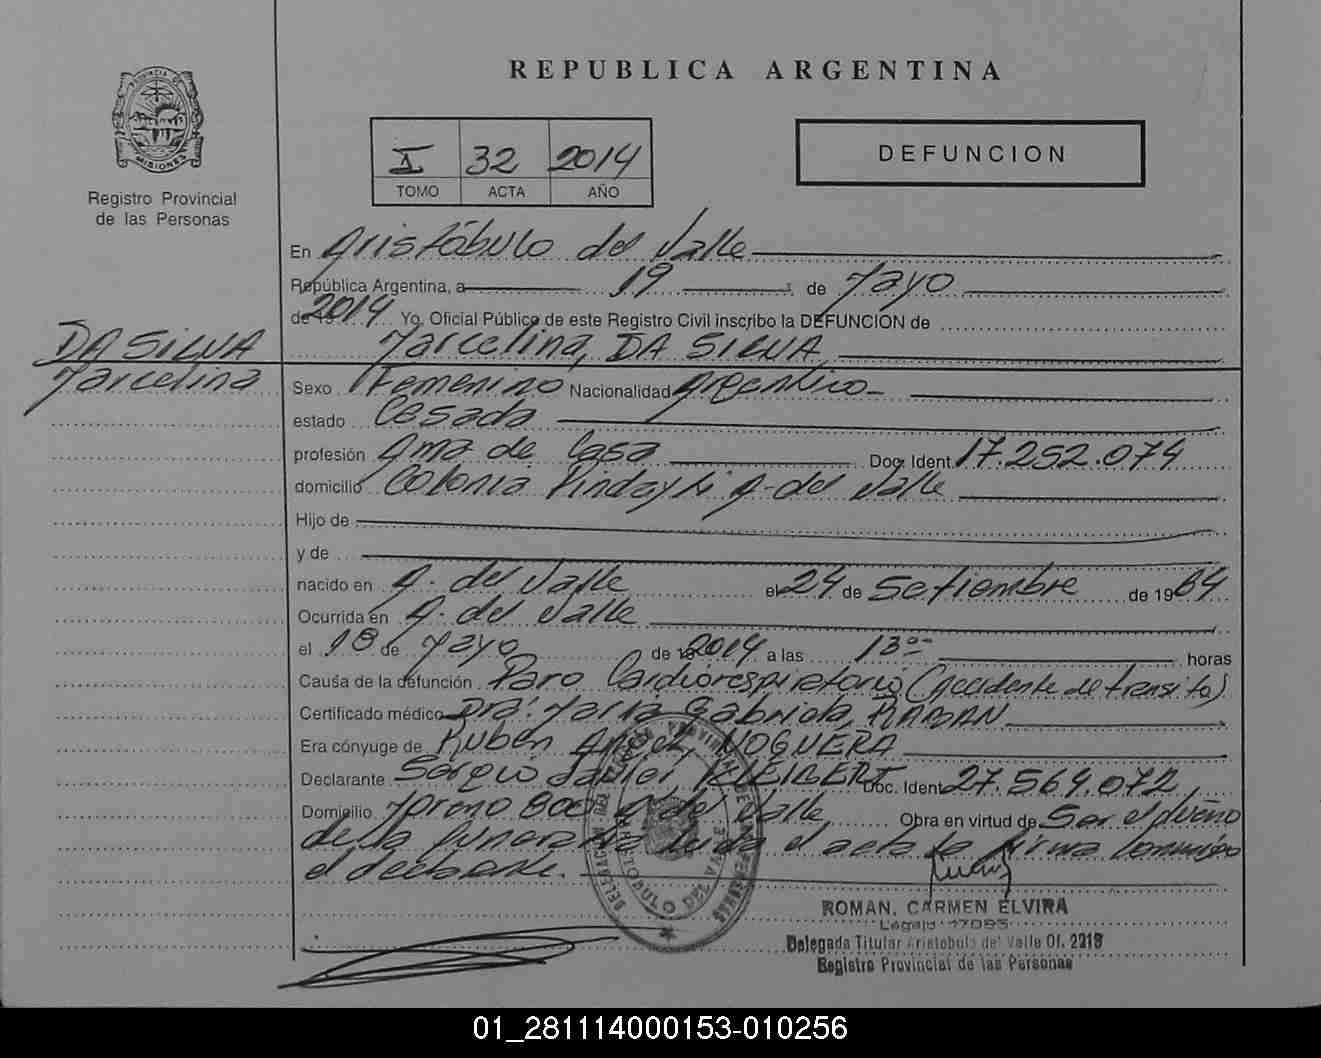 REPUBLICA ARGENTINA
PROVINCIA DE MISIONES
Registro Provincial
de las Personas
I 32 2014
TOMO ACTA AÑO
DEFUNCION
En Aristóbulo del Valle
República Argentina, a 19 de Mayo
de 19 2014 Yo, Oficial Público de este Registro Civil inscribo la DEFUNCION de
Marcelina, DA SILVA
DA SILVA
Marcelina
Sexo Femenino Nacionalidad Argentina
estado Casada
profesión Ama de Casa Doc. Ident. 17.252.074
domicilio Colonia Pindayti A. del Valle
Hijo de
y de
nacido en A. del Valle el 24 de Setiembre de 1964
Ocurrida en A. del Valle
el 18 de Mayo de 19 2014 a las 13 horas
Causa de la defunción Paro Cardiorespiratorio (Accidente de transito)
Certificado médico Dra. María Gabriela,
Era cónyuge de Ruben Angel, NOGUERA
Declarante Sergio Doc. Ident. 27.564.072
Domicilio 800 A. del Valle Obra en virtud de Ser el dueño
de la funeraria leida el acta la firma conmigo
el declarante.
DELEGACION DEL REGISTRO PROVINCIAL DE LAS PERSONAS
ARISTOBULO DEL VALLE
ROMAN, CARMEN ELVIRA
Legajo 17095
Delegada Titular Aristobulo del Valle Of. 2218
Registro Provincial de las Personas
01_281114000153-010256